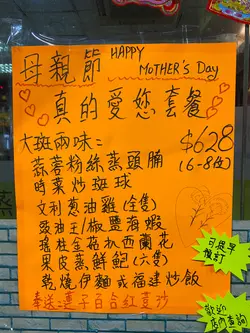 母親節 HAPPY
MOTHER'S DAY
真的愛您套餐
大斑兩味= $628
蒜蓉粉絲蒸頭腩 (6-8位)
時菜炒斑球
文利蔥油雞(全隻)
豉油王/椒鹽海蝦
瑤柱金菇扒西蘭花
果皮蒸鮮鮑(六隻)
乾燒伊麵或福建炒飯
奉送=蓮子百合紅荳沙
可提早
預訂
歡迎
店內查詢